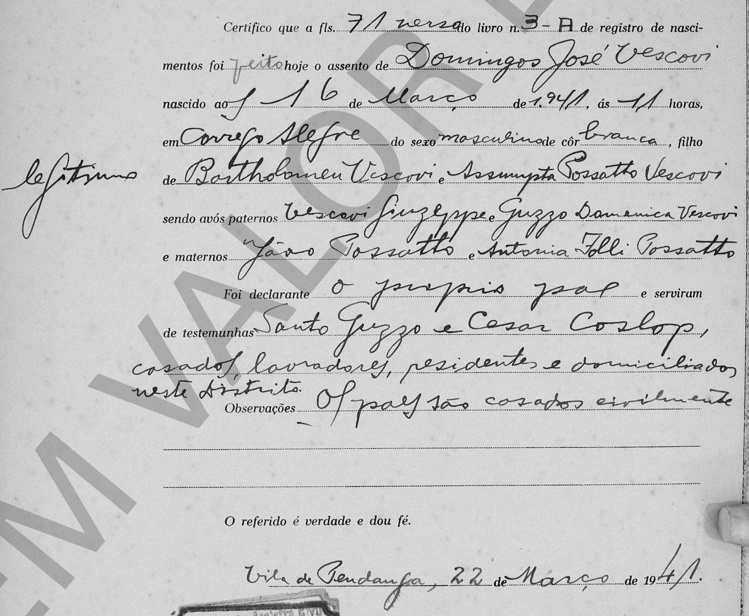 Certifico que a fls. 71 verso do livro n. 3 - A de registro de nasci-
mentos foi feito hoje o assento de Domingos José Vescovi
nascido aos 16 de Março de 1.941, ás 11 horas,
em Corrego Alegre do sexo masculino de côr branca, filho
legitimo
de Bartholomeu Vescovi e Assumpta Possatto Vescovi
sendo avós paternos Vescovi Giuzeppe e Guzzo Domenica Vescovi
e maternos João Possatto e Antonia Folli Possatto
Foi declarante o proprio pae e serviram
de testemunhas Santo Guzzo e Cesar Coslop,
casados, lavradores, residentes e domiciliados
neste Distrito.
Observações Os paes são casados civilmente
O referido é verdade e dou fé.
Vila de Pendanga, 22 de Março de 1941.
EM VALOR